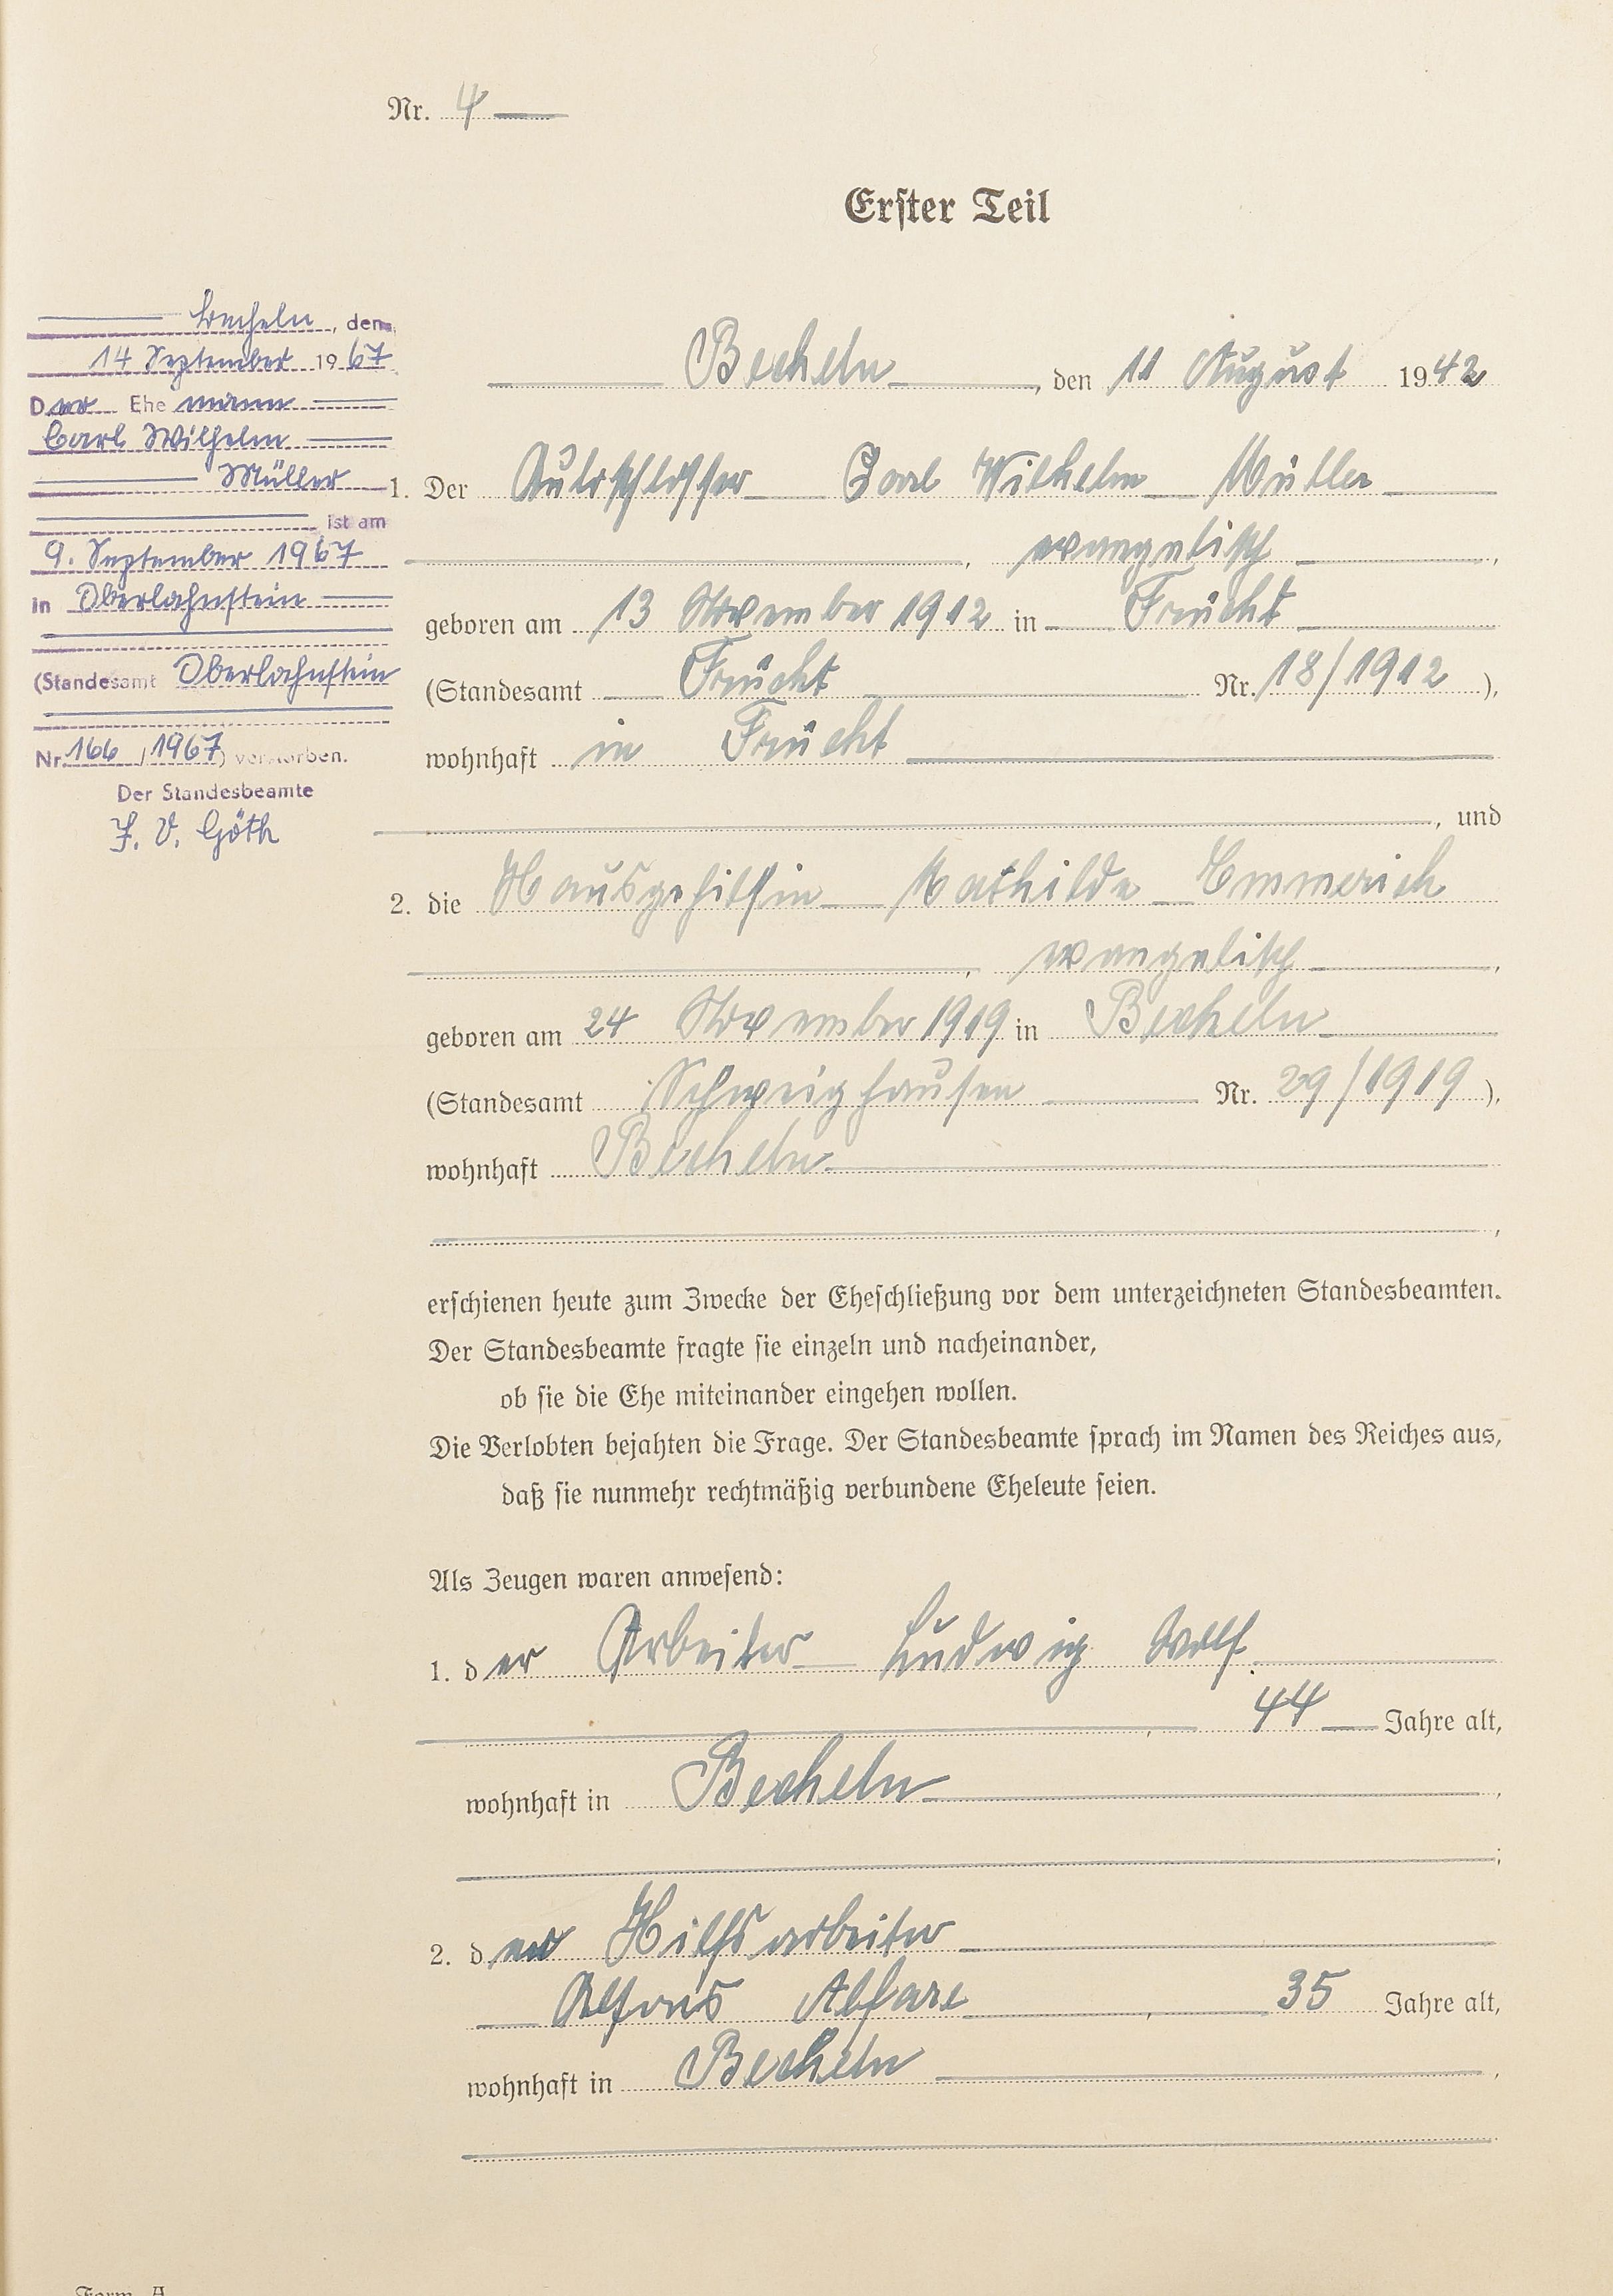 Nr. 4
Erster Teil
Becheln, den
14 September 1967
Der Ehemann
Carl Wilhelm
Müller
ist am
9. September 1967
in Oberlahnstein
(Standesamt Oberlahnstein
Nr. 166/1967) verstorben.
Der Standesbeamte
I. V. Göth
Becheln, den 11 August 1942
1. Der Autoschlosser Carl Wilhelm Müller
, evangelisch,
geboren am 13 November 1912 in Frücht
(Standesamt Frücht Nr. 18/1912),
wohnhaft in Frücht
, und
2. die Hausgehilfin Mathilde Emmerich
, evangelisch,
geboren am 24 November 1919 in Becheln
(Standesamt Schweighausen Nr. 29/1919),
wohnhaft Becheln
,
erschienen heute zum Zwecke der Eheschließung vor dem unterzeichneten Standesbeamten.
Der Standesbeamte fragte sie einzeln und nacheinander,
ob sie die Ehe miteinander eingehen wollen.
Die Verlobten bejahten die Frage. Der Standesbeamte sprach im Namen des Reiches aus,
daß sie nunmehr rechtmäßig verbundene Eheleute seien.
Als Zeugen waren anwesend:
1. der Arbeiter Ludwig Wolf
, 44 Jahre alt,
wohnhaft in Becheln,
;
2. der Hilfsarbeiter
Alfons, 35 Jahre alt,
wohnhaft in Becheln,
Form. A